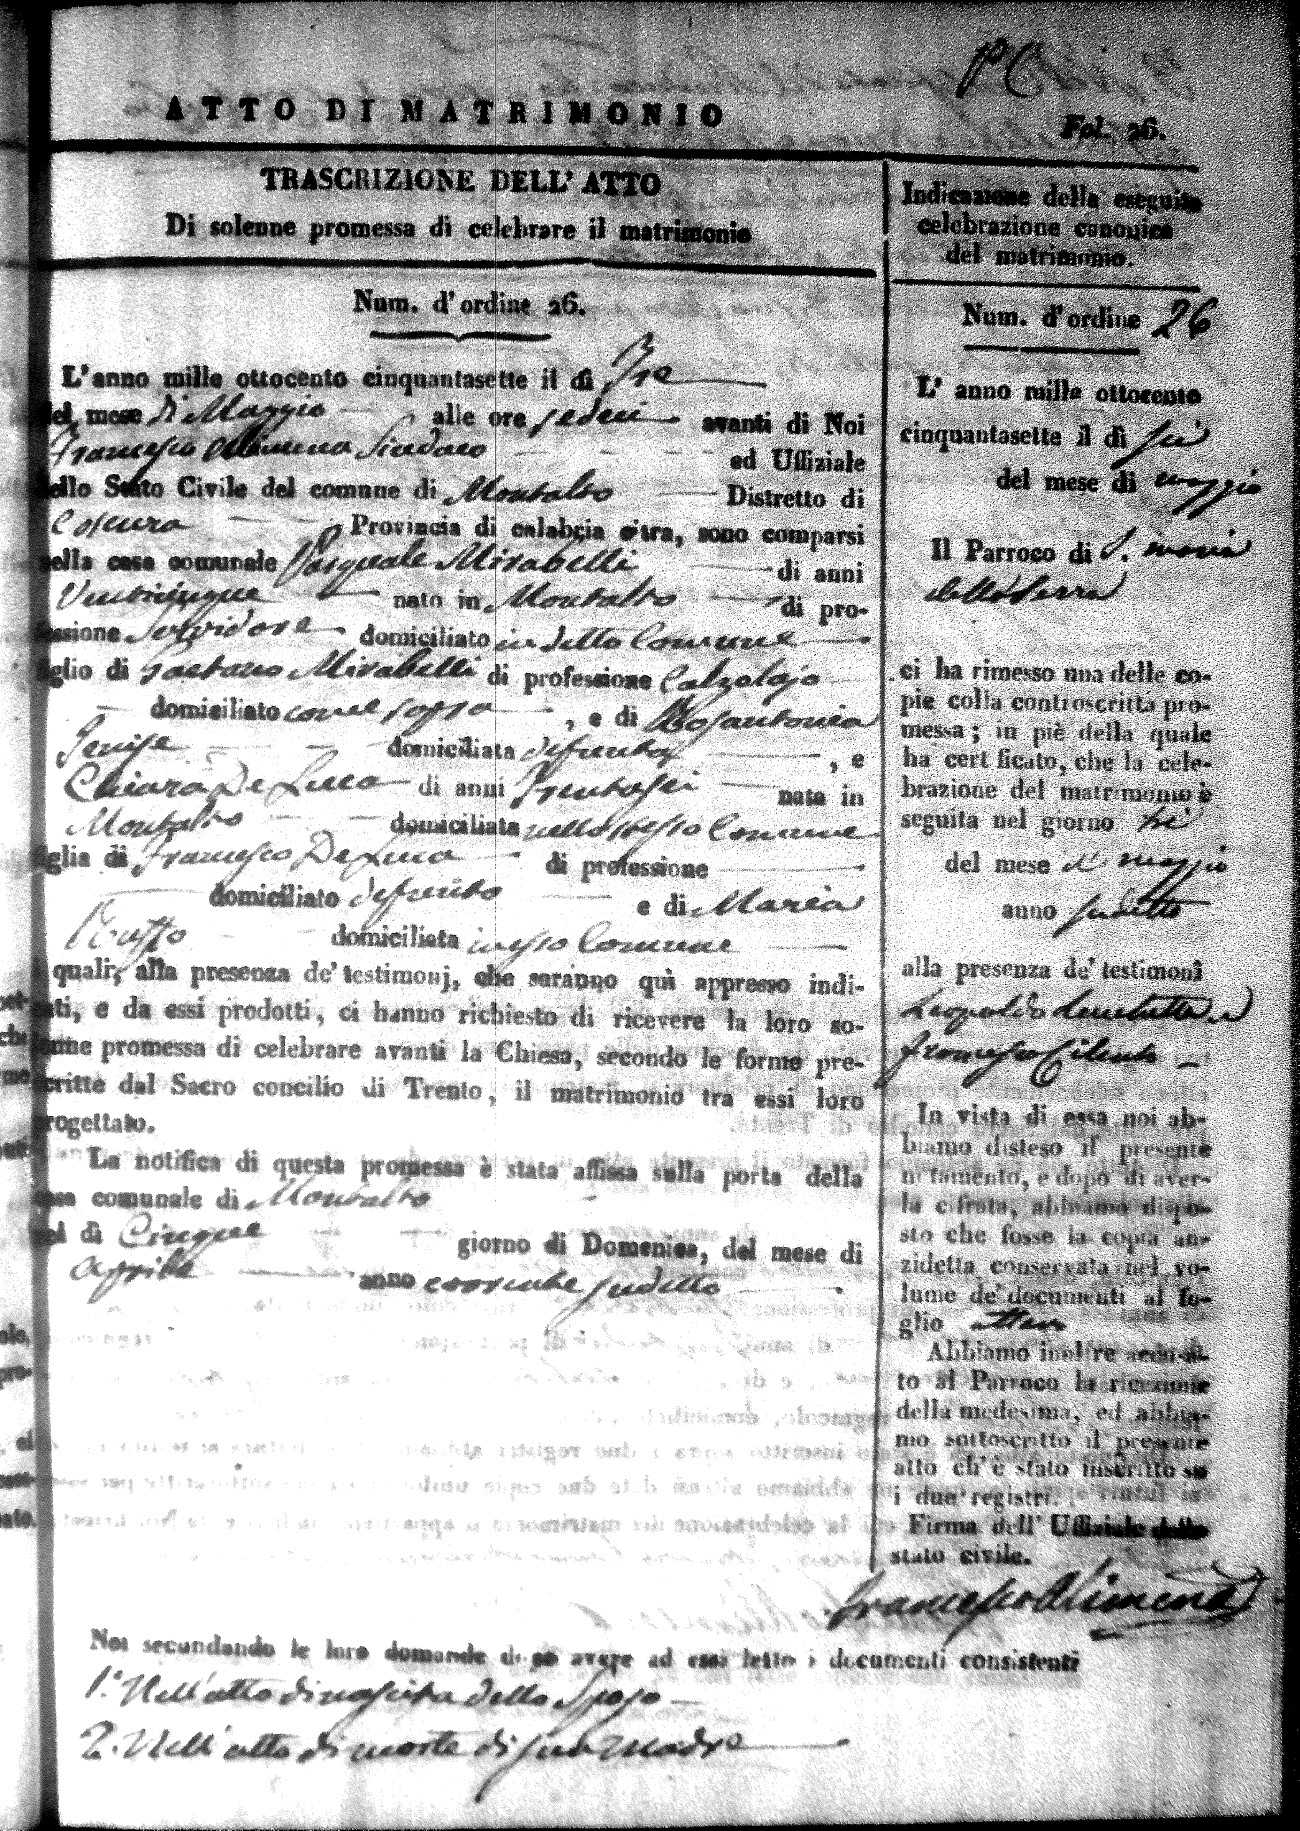 PC
ATTO DI MATRIMONIO
Fol. 26.
TRASCRIZIONE DELL' ATTO
Di solenne promessa di celebrare il matrimonio
Num. d' ordine 26.
L' anno mille ottocento cinquantasette il dì Tre
del mese di Maggio alle ore sedeci avanti di Noi
Francesco Alimena Sindaco ed Uffiziale
dello Stato Civile del comune di Montalto Distretto di
Cosenza Provincia di calabria citra, sono comparsi
nella casa comunale Pasquale Mirabelli di anni
Venticinque nato in Montalto di pro-
fessione Servidore domiciliato in detto Comune
figlio di Gaetano Mirabelli di professione Calzolajo
domiciliato come sopra, e di Rosantonia
domiciliata defunta, e
Chiara De Luca di anni Trentasei nata in
Montalto domiciliata nello stesso Comune
figlia di Francesco De Luca di professione
domiciliato defunto e di Maria
domiciliata in esso Comune
i quali, alla presenza de' testimonj, che saranno quì appresso indi-
cati, e da essi prodotti, ci hanno richiesto di ricevere la loro so-
lenne promessa di celebrare avanti la Chiesa, secondo le forme pre-
scritte dal Sacro concilio di Trento, il matrimonio tra essi loro
progettato.
La notifica di questa promessa è stata affissa sulla porta della
casa comunale di Montalto
nel dì Cinque giorno di Domenica, del mese di
Aprile anno corrente sudetto
Noi secundando le loro domande dopo avere ad essi letto i documenti consistenti
1.° Nell'atto di nascita dello Sposo
2. Nell'atto di morte di sua Madre
Indicazione della eseguita
celebrazione canonica
del matrimonio.
Num. d' ordine 26
L' anno mille ottocento
cinquantasette il dì sei
del mese di maggio
Il Parroco di S. Maria
della Serra
ci ha rimesso una delle co-
pie colla controscritta pro-
messa; in piè della quale
ha certificato, che la cele-
brazione del matrimonio è
seguita nel giorno sei
del mese di maggio
anno sudetto
alla presenza de' testimonî
Leopoldo e
Francesco Cilento
In vista di essa noi ab-
biamo disteso il presente
notamento, e dopo di aver-
la cifrata, abbiamo dispo-
sto che fosse la copia an-
zidetta conservata nel vo-
lume de' documenti al fo-
glio
Abbiamo inoltre accusa-
to al Parroco la ricezione
della medesima, ed abbia-
mo sottoscritto il presente
atto ch' è stato inscritto su
i due registri.
Firma dell' Uffiziale dello
stato civile.
Francesco Alimena